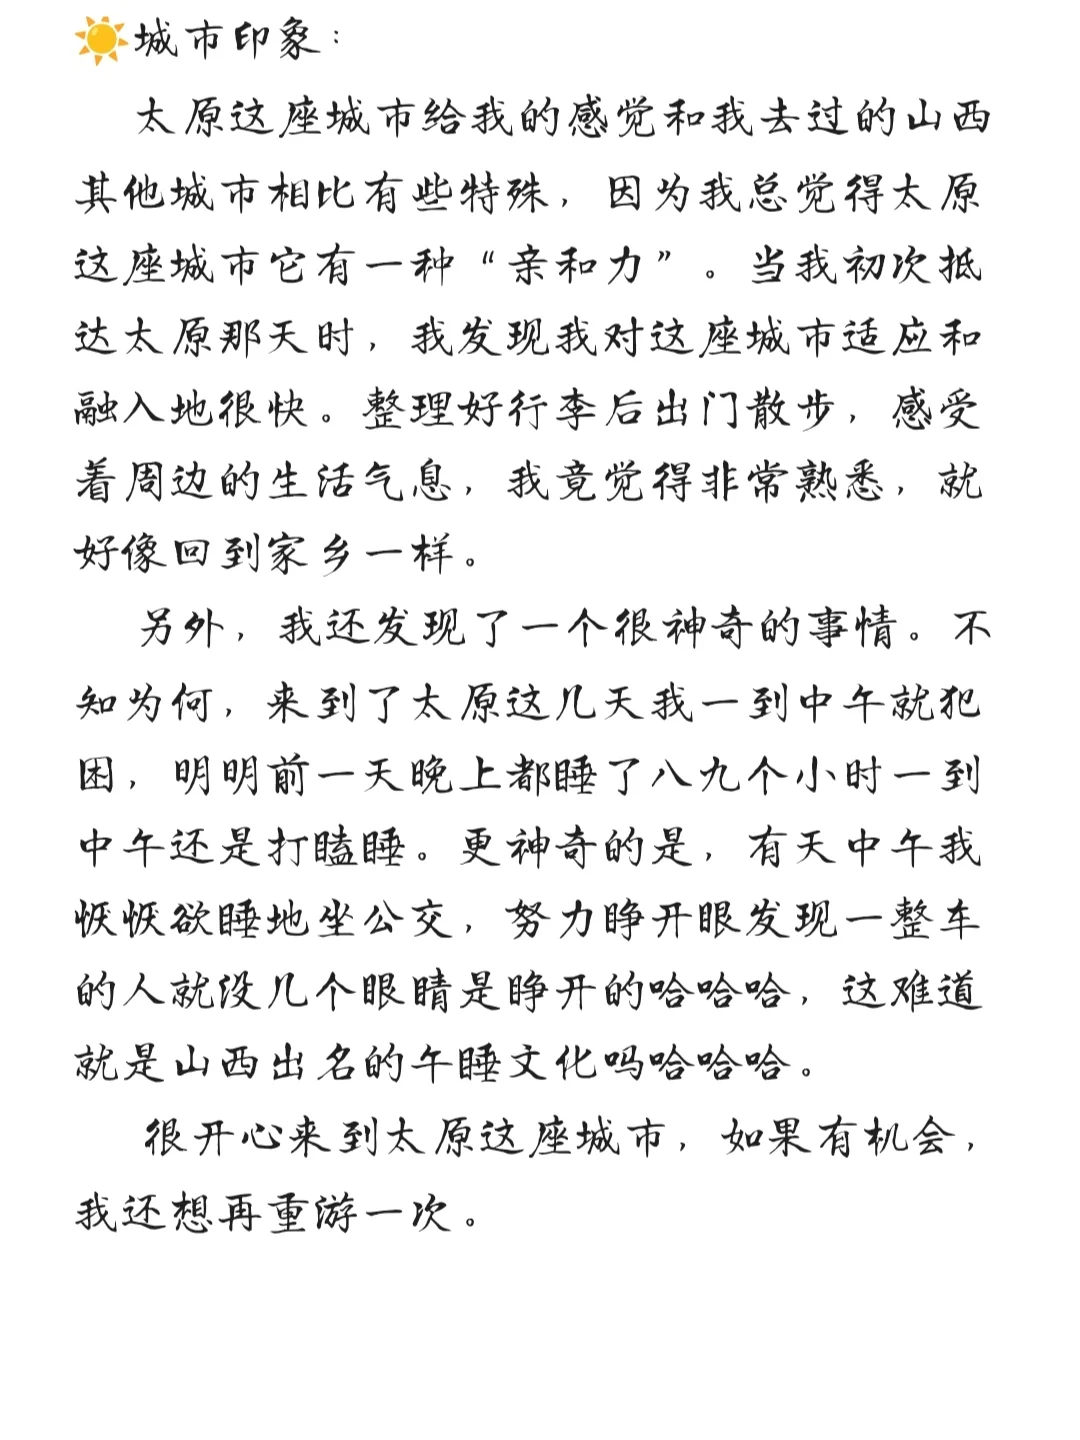 ☀️城市印象：
太原这座城市给我的感觉和我去过的山西
其他城市相比有些特殊，因为我总觉得太原
这座城市它有一种“亲和力”。当我初次抵
达太原那天时，我发现我对这座城市适应和
融入地很快。整理好行李后出门散步，感受
着周边的生活气息，我竟觉得非常熟悉，就
好像回到家乡一样。
另外，我还发现了一个很神奇的事情。不
知为何，来到了太原这几天我一到中午就犯
困，明明前一天晚上都睡了八九个小时一到
中午还是打瞌睡。更神奇的是，有天中午我
恹恹欲睡地坐公交，努力睁开眼发现一整车
的人就没几个眼睛是睁开的哈哈哈，这难道
就是山西出名的午睡文化吗哈哈哈。
很开心来到太原这座城市，如果有机会，
我还想再重游一次。